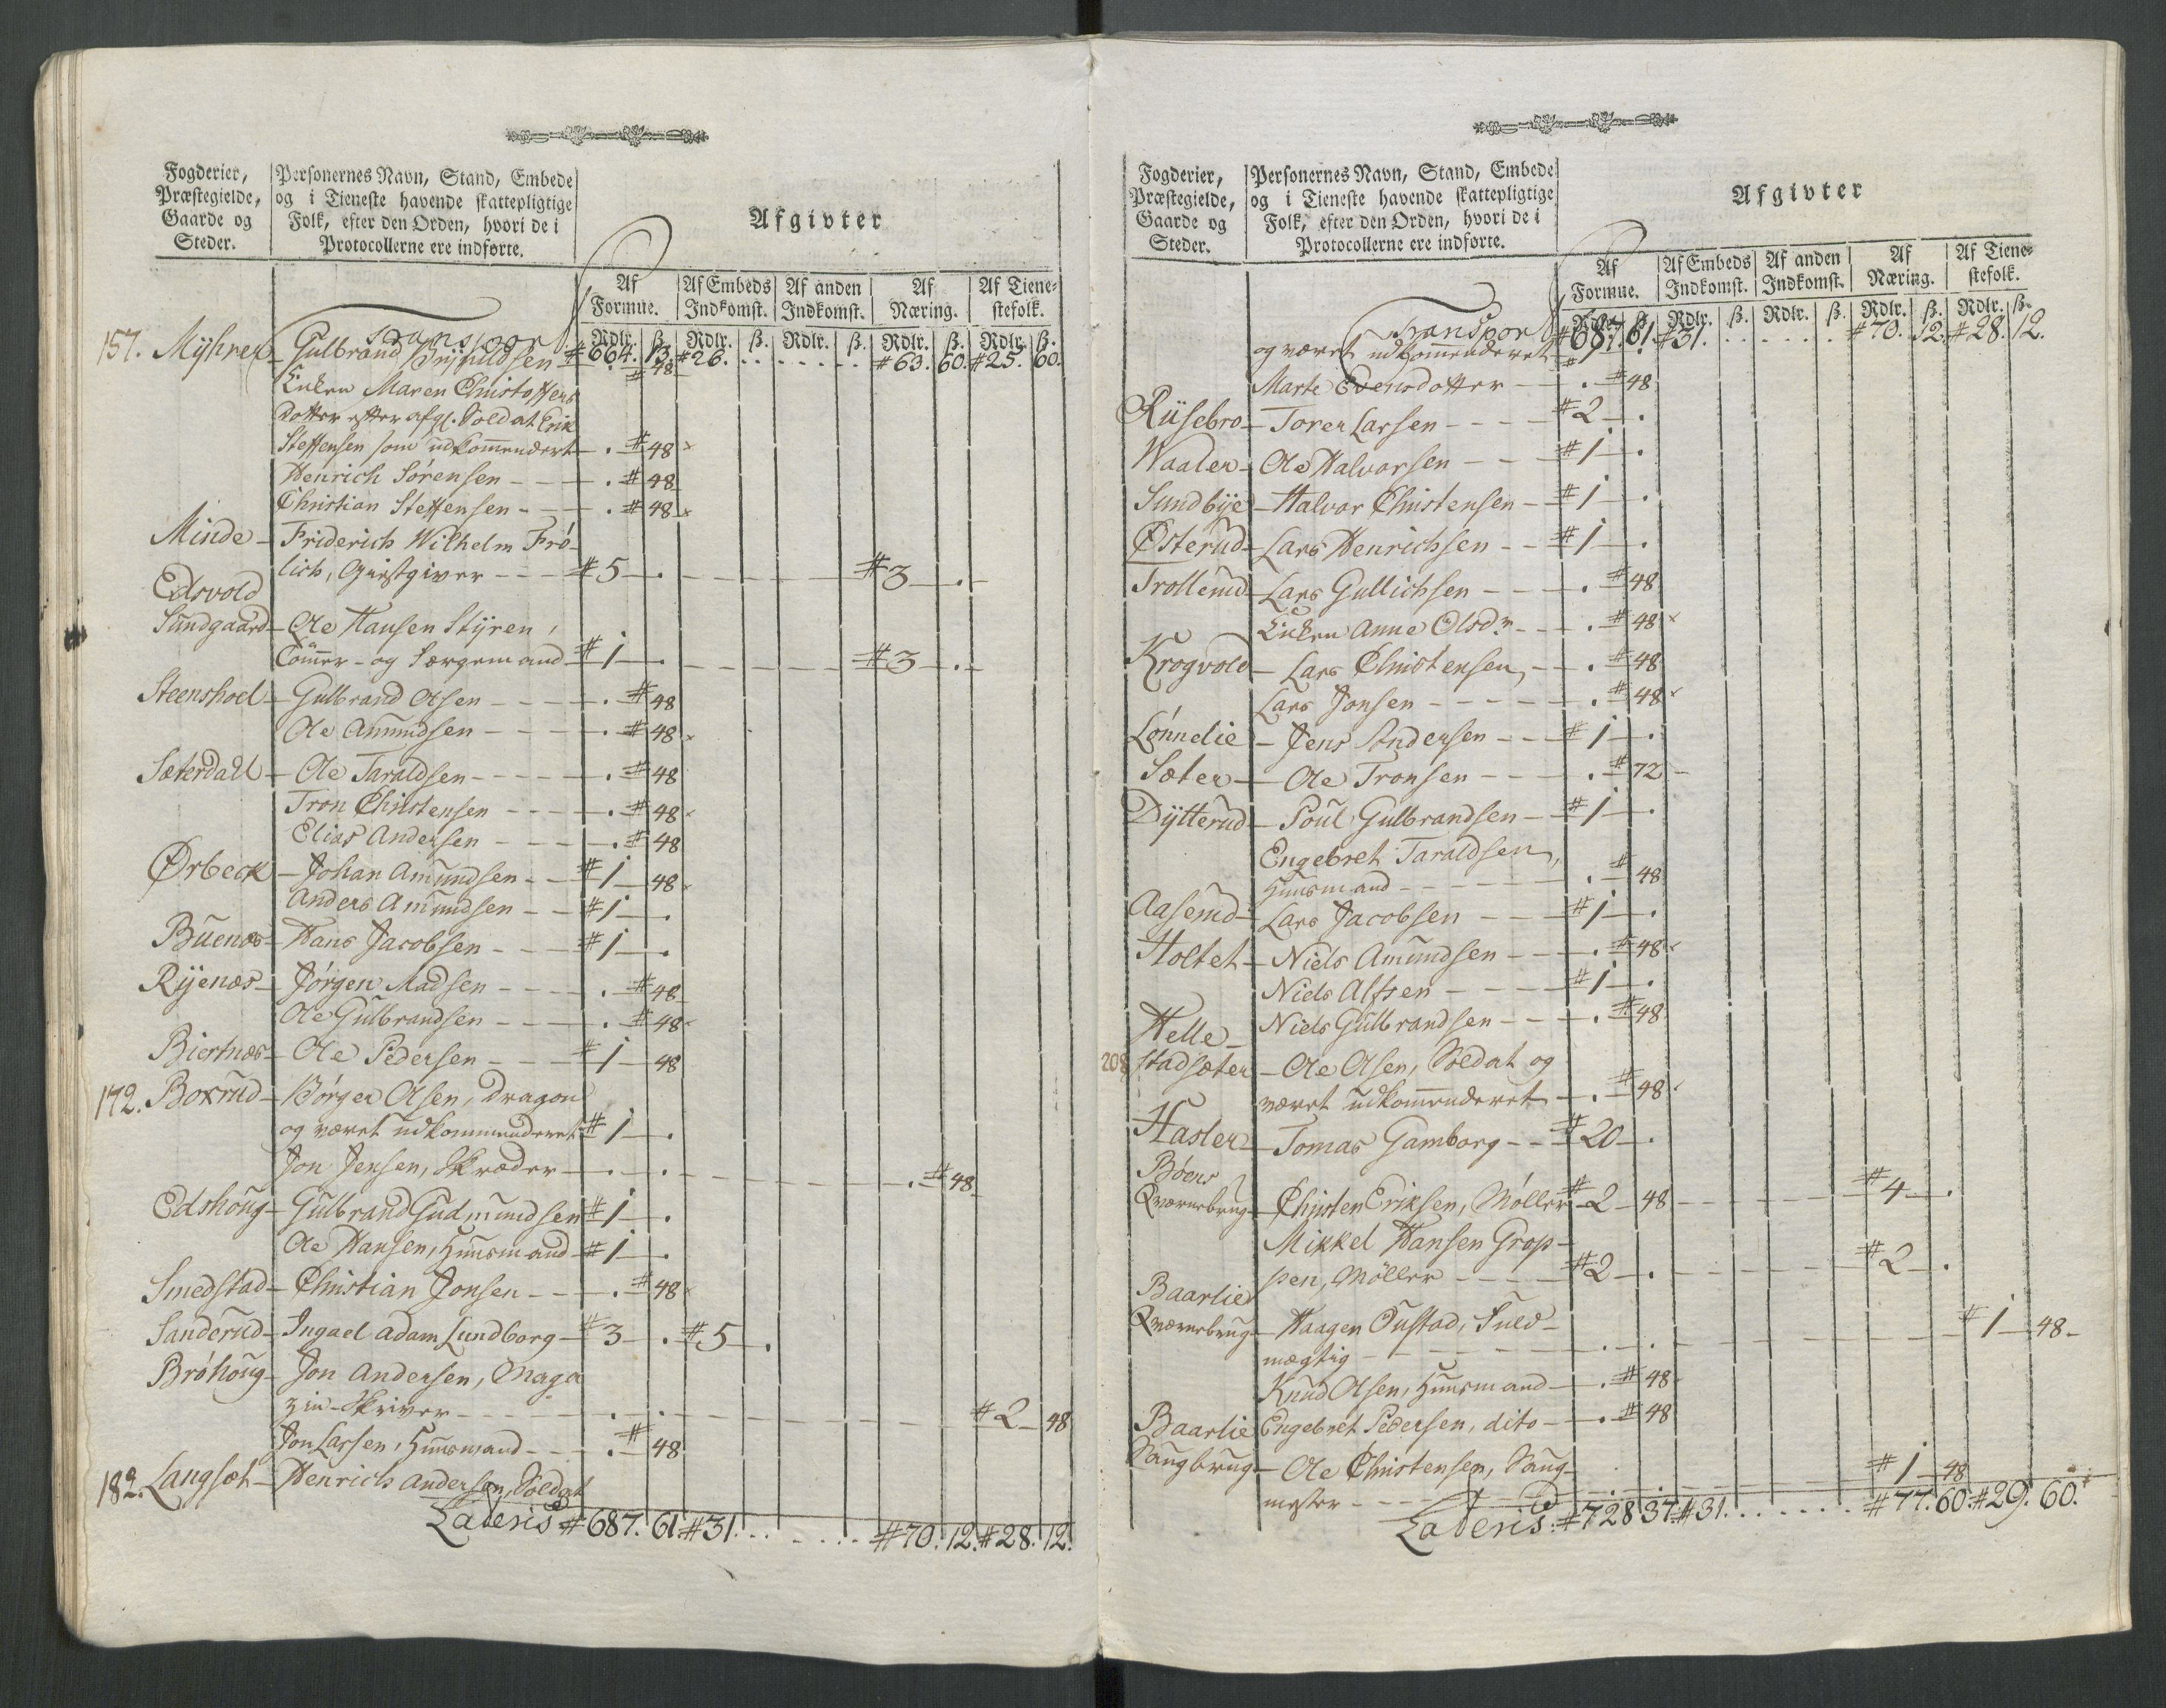 Fogderier,
Præstegielde,
Gaarde og
Steder.
Personernes Navn, Stand, Embede
og i Tieneste havende skattepligtige
Folk, efter den Orden, hvori de i
Protocollerne ere indførte.
Afgivter
Af Formue. Af Embeds Indkomst. Af anden Indkomst. Af Næring. Af Tienestefolk.
Rdlr. ß. Rdlr. ß. Rdlr. ß. Rdlr. ß. Rdlr. ß.
Transport # 664. 13. # 26. . . . . . . # 63. 60. # 25. 60.
157. Myhrer - Gulbrand # 48
Enken Maren Christoffers
dotter efter afgl. Soldat Erik
Steffensen som udkommendert . # 48 ×
Henrich Sørensen - - - . # 48
Christian Steffensen - - . # 48 ×
Minde - Friderich Wilhelm Frø-
lich, Giæstgiver - - - # 5 . - - - # 3 .
Edsvold
Sundgaard - Ole Hansen Styren,
Tømmer- og Særgemand # 1 . - - - # 3 .
Steenshoel - Gulbrand Olsen - - - . # 48
Ole Amundsen - - - . # 48 ×
Sæterdall - Ole Taraldsen - - - . # 48
Tron Christensen - - - . # 48 ×
Elias Andersen - - - . # 48
Ørbeck - Johan Amundsen - - # 1 48 ×
Anders Amundsen - - # 1 .
Buenæs - Hans Jacobsen - - - # 1 .
Ryenæs - Jørgen Madsen - - - . # 48
Ole Gulbrandsen - - - . # 48
Biertnæs - Ole Pedersen - - - # 1 48
172. Boxrud - Børger Olsen, Dragon
og været udkommenderet # 1 .
Jon Jensen, Skræder - . . - - - . # 48
Edshoug - Gulbrand Gudmundsen # 1 .
Ole Hansen, Huusmand # 1 .
Smedstad - Christian Jonsen - - . # 48 ×
Sanderud - Ingael Adam Lundborg - # 3 . # 5 .
Brøhoug - Jon Andersen, Maga
zin-Skriver - - - . . - - - # 2 48
Jon Larsen, Huusmand - - . # 48
182. Langset - Henrich Andersen, Soldat
Lateris # 687. 61. # 31. . . . . . # 70. 12. # 28. 12.
Fogderier,
Præstegielde,
Gaarde og
Steder.
Personernes Navn, Stand, Embede
og i Tieneste havende skattepligtige
Folk, efter den Orden, hvori de i
Protocollerne ere indførte.
Afgivter
Af Formue. Af Embeds Indkomst. Af anden Indkomst. Af Næring. Af Tienestefolk.
Rdlr. ß. Rdlr. ß. Rdlr. ß. Rdlr. ß. Rdlr. ß.
Transport # 687. 61. # 31. . . . . . # 70. 12. # 28. 12.
og været udkommenderet # 1 .
Marte Evensdotter - . # 48
Rüsebro - Torer Larsen - - - # 2 .
Waaler - Ole Halvorsen - - # 1 .
Sundbye - Halvor Christensen - # 1 .
Østerud - Lars Henrichsen - - # 1 .
Trollerud - Lars Gullichsen - - . # 48
Enken Anne Olsdr. - - . # 48 ×
Krogvold - Lars Christensen, - . # 48
Lars Jonsen - - - - . # 48 ×
Lønnelie - Jens Andersen - - # 1 .
Sæter - Ole Tronsen - - - . # 72
Dytterud - Poul Gulbrandsen - # 1 .
Engebret Taraldsen,
Huusmand - - - - . # 48
Aaserud - Lars Jacobsen - - # 1 .
Holtet - Niels Amundsen - - . # 48 ×
Niels Alfsen - - - # 1 .
Niels Gulbrandsen - - . # 48
Helle-
208 stadsæter - Ole Olsen, Soldat og
været udkommenderet - . # 48 ×
Hasler - Tomas Gamborg - - # 20 .
Bøens
Qværnebrug - Christen Eriksen, Møller # 2 48 - - - # 4 .
Mikkel Hansen Grop-
pen, Møller - - - # 2 . - - - # 2 .
Baarlied
Qværnebrug - Haagen Oustad, Fuld-
mægtig - - - . . - - - # 1 48
Knud Olsen, Huusmand - . # 48
Baarlie Engebret Pedersen, dito - . # 48
Saugbrug - Ole Christensen, Saug-
mester - - - . . # 1 48
Lateris: # 728. 37. # 31. . . . . . # 77. 60. # 29. 60.